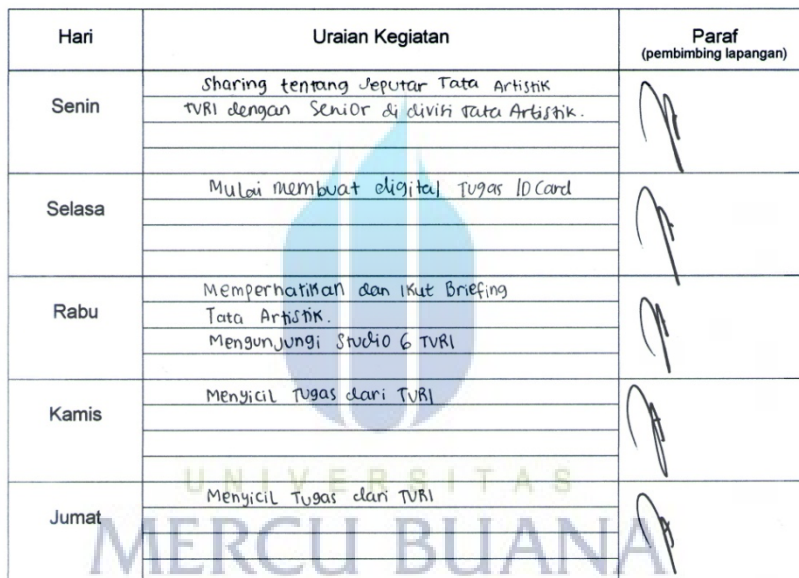 Hari Uraian Kegiatan Paraf
(pembimbing lapangan)
Senin
Sharing tentang Seputar Tata Artistik
TVRI dengan Senior di divisi Tata Artistik.
Selasa
Mulai membuat digital Tugas ID Card
Rabu
Memperhatikan dan Ikut Briefing
Tata Artistik.
Mengunjungi Studio 6 TVRI
Kamis
Menyicil Tugas dari TVRI
UNIVERSITAS
Jumat
Menyicil Tugas dari TVRI
MERCU BUANA